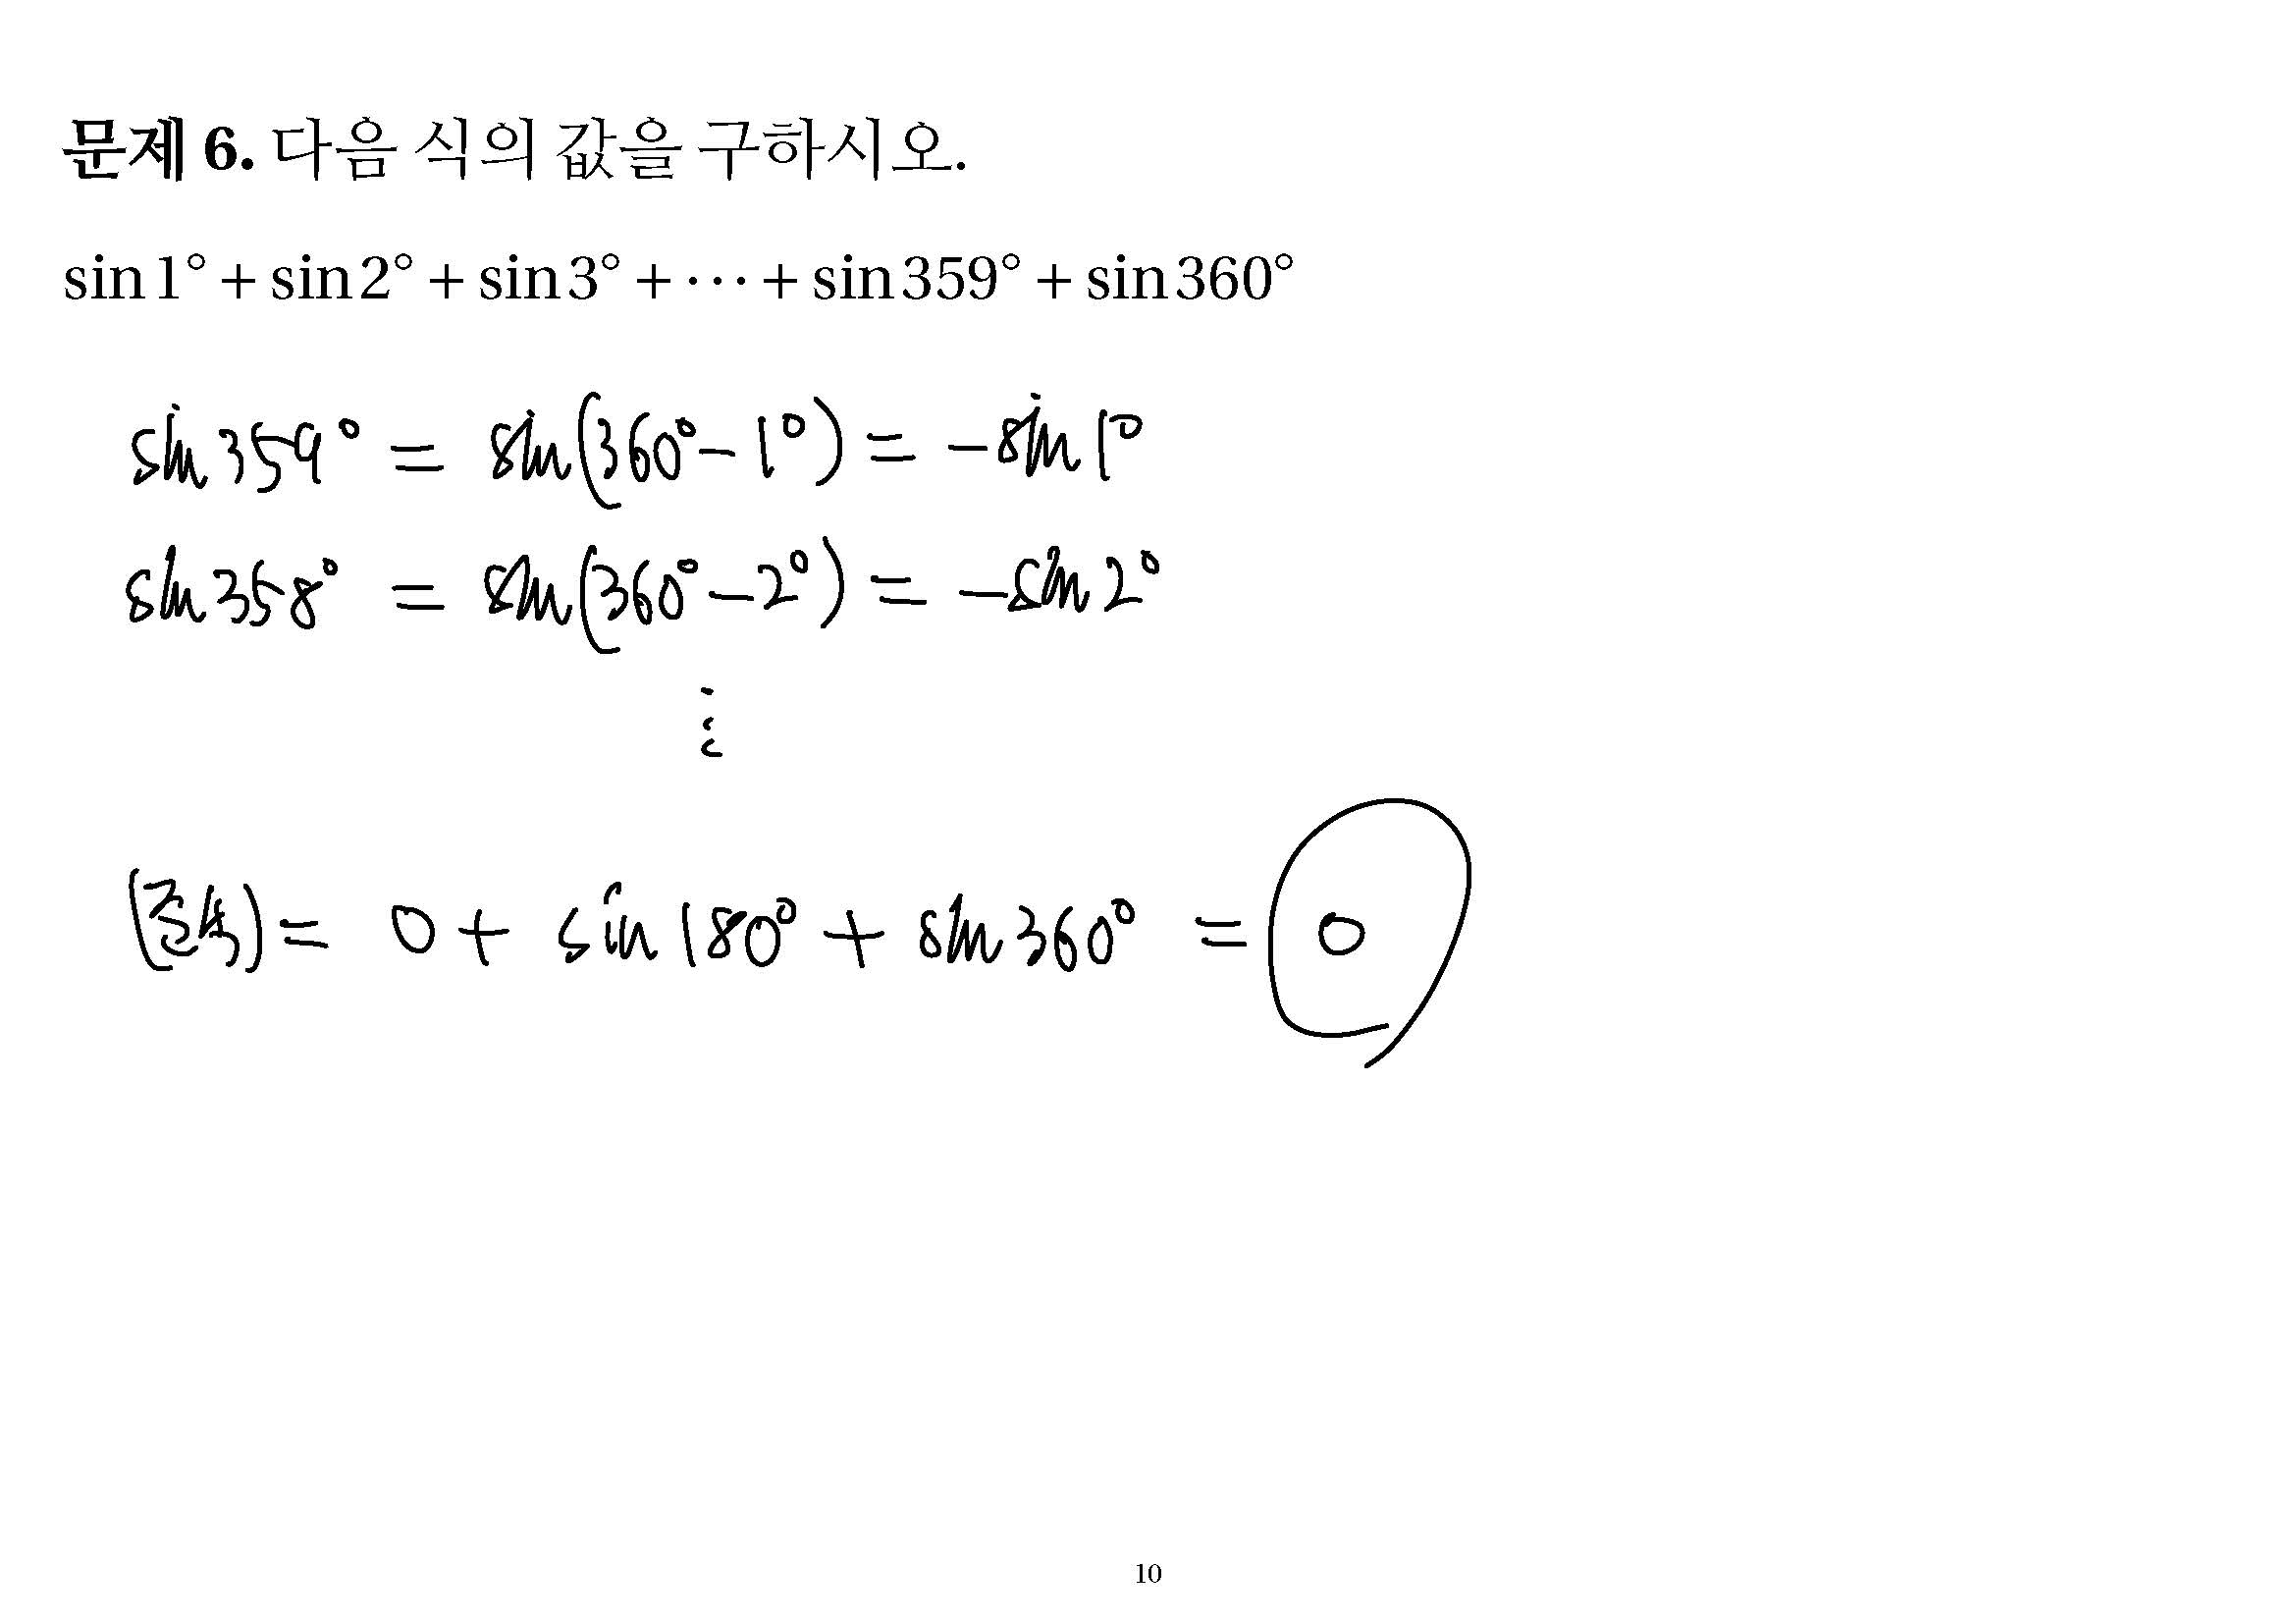 문제 6. 다음 식의 값을 구하시오.
sin 1° + sin 2° + sin 3° + ⋯ + sin 359° + sin 360°
sin 359° = sin(360° − 1°) = −sin 1°
sin 358° = sin(360° − 2°) = −sin 2°
⋮
(준식) = 0 + sin 180° + sin 360° = 0
10